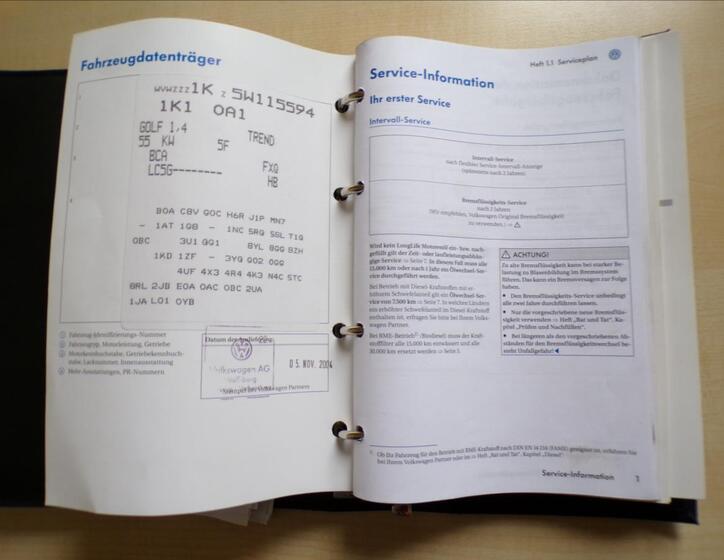 Fahrzeugdatenträger
WVWZZZ1K Z 5W115594
1K1 OA1
GOLF 1,4 TREND
55 KW 5F
BCA FXQ
LC5G-------- HB
BOA C8V GOC H6R J1P MN7
- 1AT 1G8 - 1NC 5RQ 5SL T1G
OBC 3U1 QQ1 8YL 8GG 8ZH
1KD 1ZF - 3YQ 9Q2 0GG
4UF 4X3 4R4 4K3 N4C 5TC
8RL 2JB E0A 0AC OBC 2UA
1JA L01 0YB
1 Fahrzeug-Identifizierungs-Nummer
2 Fahrzeugtyp, Motorleistung, Getriebe
3 Motorkennbuchstabe, Getriebekennbuch-
stabe, Lacknummer, Innenausstattung
4 Mehr-Ausstattungen, PR-Nummern
Datum der Auslieferung
Volkswagen AG
Wolfsburg
05. NOV. 2004
Stempel des Volkswagen Partners
Heft 1.1 Serviceplan
Service-Information
Ihr erster Service
Intervall-Service
Intervall-Service
nach flexibler Service-Intervall-Anzeige
(spätestens nach 2 Jahren)
Bremsflüssigkeits-Service
nach 2 Jahren
(Wir empfehlen, Volkswagen Original Bremsflüssigkeit
zu verwenden.) ⇒ ⚠
Wird kein LongLife Motorenöl ein- bzw. nach-
gefüllt gilt der Zeit- oder laufleistungsabhän-
gige Service ⇒ Seite 7. In diesem Fall muss alle
15.000 km oder nach 1 Jahr ein Ölwechsel-Ser-
vice durchgeführt werden.
Bei Betrieb mit Diesel-Kraftstoffen mit er-
höhtem Schwefelanteil gilt ein Ölwechsel-Ser-
vice von 7.500 km ⇒ Seite 7. In welchen Ländern
ein erhöhter Schwefelanteil im Diesel Kraftstoff
enthalten ist, erfragen Sie bitte bei Ihrem Volks-
wagen Partner.
Bei RME-Betrieb1) (Biodiesel) muss der Kraft-
stofffilter alle 15.000 km entwässert und alle
30.000 km ersetzt werden ⇒ Seite 5.
⚠ ACHTUNG!
Zu alte Bremsflüssigkeit kann bei starker Be-
lastung zu Blasenbildung im Bremssystem
führen. Das kann ein Bremsversagen zur Folge
haben.
• Den Bremsflüssigkeits-Service unbedingt
alle zwei Jahre durchführen lassen.
• Nur die vorgeschriebene neue Bremsflüs-
sigkeit verwenden ⇒ Heft „Rat und Tat“, Ka-
pitel „Prüfen und Nachfüllen“.
• Bei längeren als den vorgeschriebenen Ab-
ständen für den Bremsflüssigkeitswechsel be-
steht Unfallgefahr! ◀
1) Ob Ihr Fahrzeug für den Betrieb mit RME-Kraftstoff nach DIN EN 14 214 (FAME) geeignet ist, erfahren Sie
bei Ihrem Volkswagen Partner oder im ⇒ Heft „Rat und Tat“, Kapitel „Diesel“
Service-Information